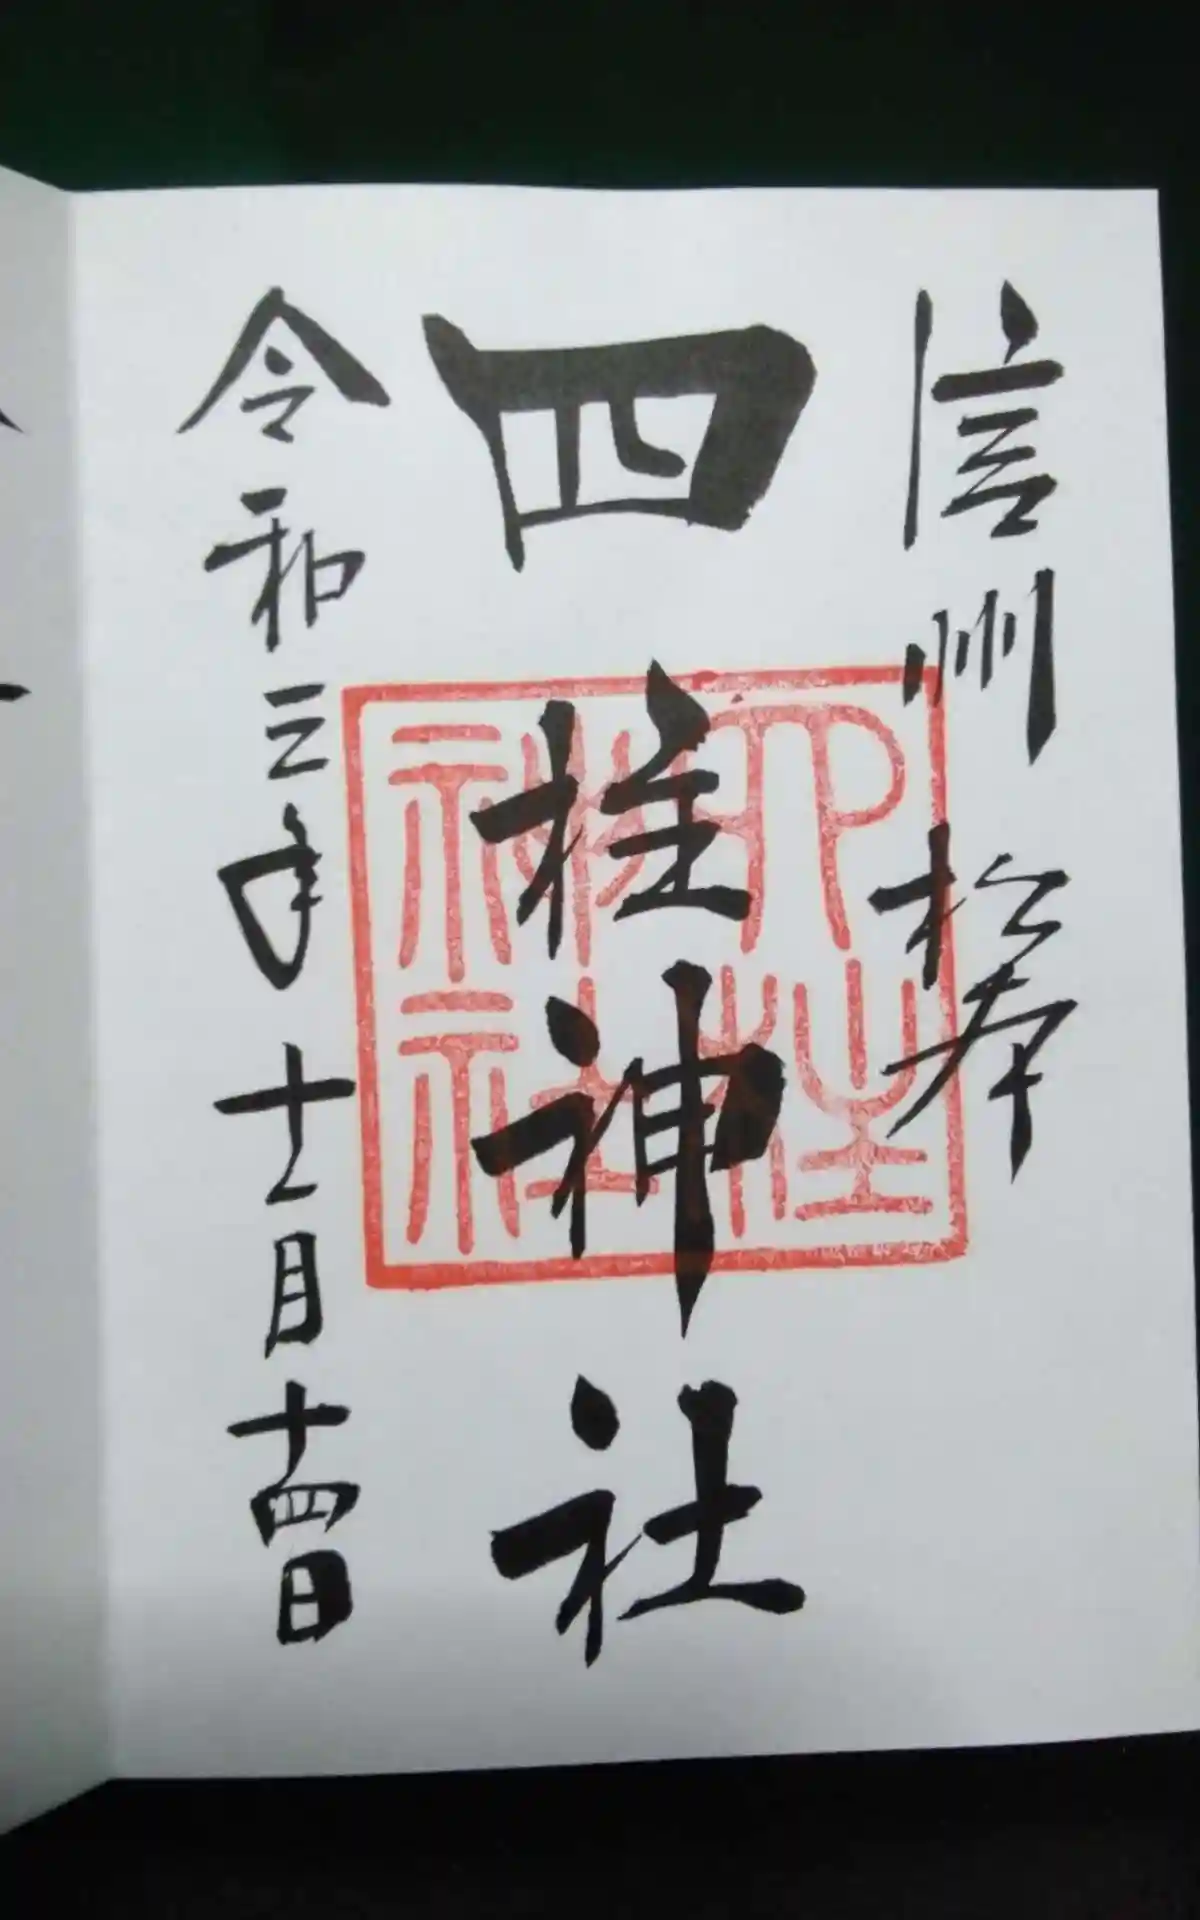 信州松本
四柱神社
令和三年十二月十四日
四柱神社